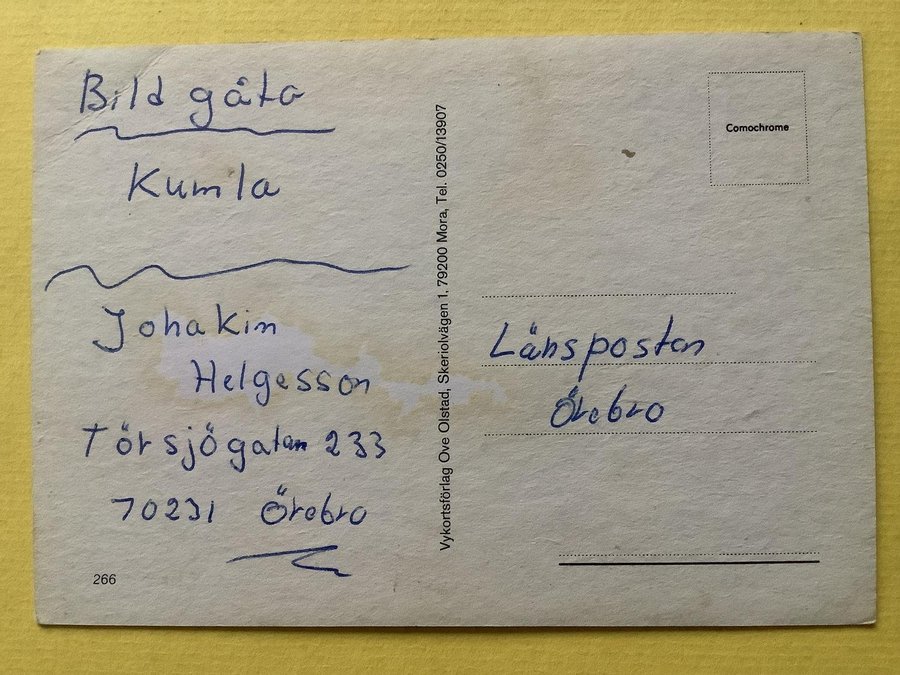 Bild gåta
Kumla
Johakim
Helgesson
Törsjögatan 233
70231 Örebro
266
Vykortsförlag Ove Olstad, Skeriolvägen 1, 79200 Mora, Tel. 0250/13907
Comochrome
Länsposten
Örebro